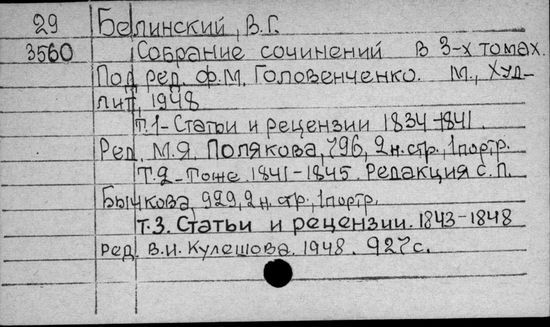 29 Белинский, В.Г.
3560 Собрание сочинений в 3-х томах.
Под ред. Ф.М. Головенченко. М., Худ-
лит, 1948
Т.1 - Статьи и рецензии 1834-1841.
Ред. М.Я. Полякова, 796, 2 н. стр., 1 портр.
Т.2 - Тоже 1841-1845. Редакция С.П.
Бычкова, 929, 2 н. стр., 1 портр.
Т.3. Статьи и рецензии. 1843-1848
ред. В.И. Кулешова. 1948. 927 с.